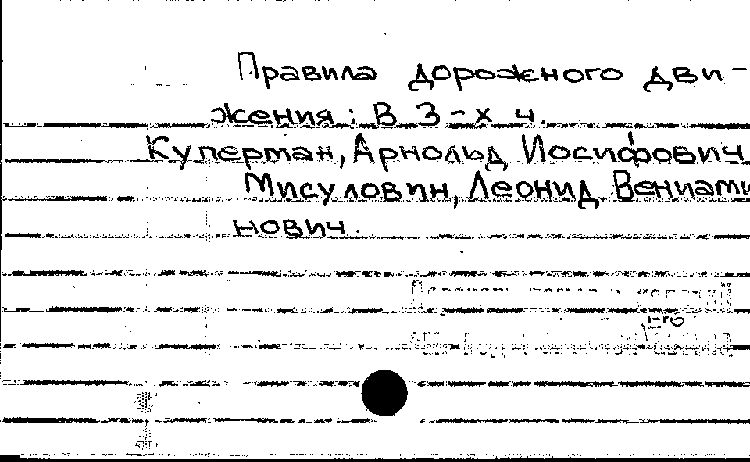 Правила дорожного дви-
жения: В 3-х ч.
Куперман, Арнольд Иосифович
Мисуловин, Леонид Вениами
нович.